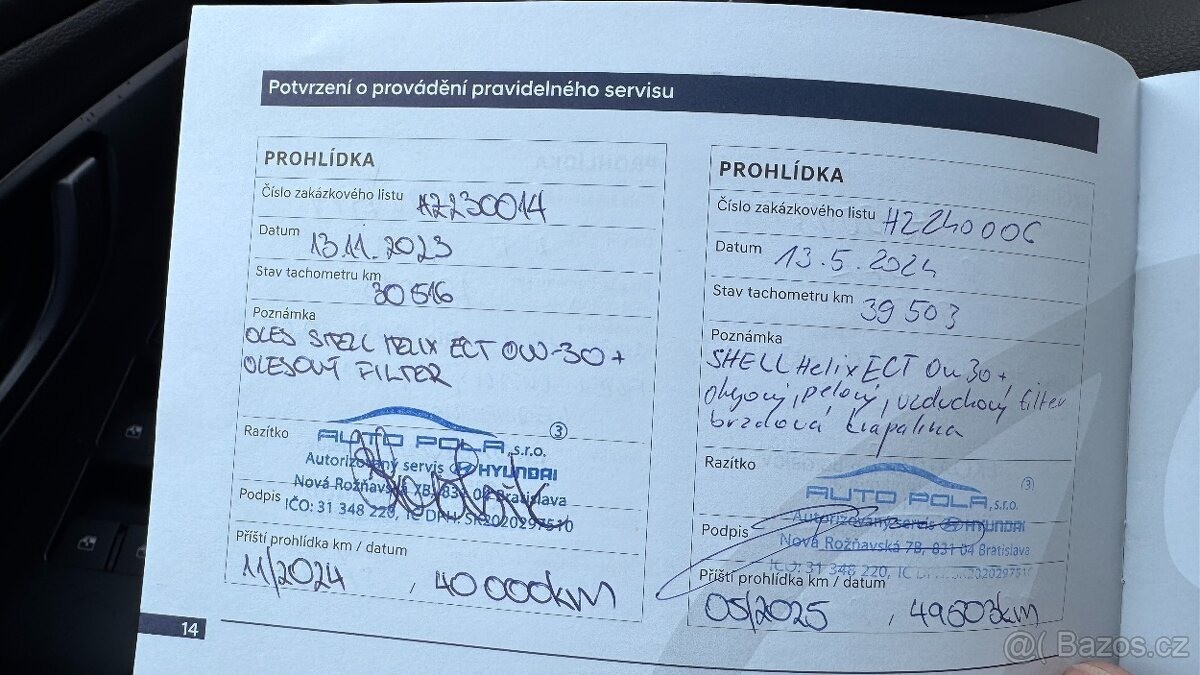 Potvrzení o provádění pravidelného servisu
PROHLÍDKA
Číslo zakázkového listu HZ230014
Datum 13.11.2023
Stav tachometru km 30516
Poznámka
OLEJ SHELL HELIX ECT 0W-30+
OLEJOVÝ FILTER
Razítko
AUTO POLA, s.r.o.
3
Autorizovaný servis HYUNDAI
Nová Rožňavská 7B, 831 04 Bratislava
Podpis
IČO: 31 348 220, IČ DPH: SK2020297510
Příští prohlídka km / datum
11/2024, 40 000km
14
PROHLÍDKA
Číslo zakázkového listu HZ240006
Datum 13.5.2024
Stav tachometru km 39503
Poznámka
SHELL Helix ECT 0w30+
olejový, pelový, vzduchový filter
brzdová kvapalina
Razítko
(3)
AUTO POLA, s.r.o.
Autorizovaný servis HYUNDAI
Podpis
Nová Rožňavská 7B, 831 04 Bratislava
IČO: 31 348 220, IČ DPH: SK2020297510
Příští prohlídka km / datum
05/2025, 49503km
Bazos.cz